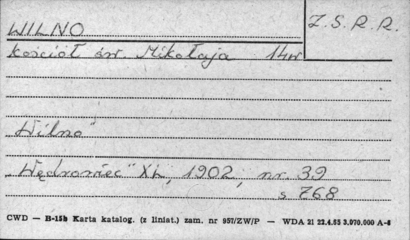 WILNO Z.S.R.R.
Kościół św. Mikołaja 14w
"Wilno"
"Wędrowiec" XL, 1902, nr. 39
s 768
CWD — B-15b Karta katalog. (z liniat.) zam. nr 957/ZW/P — WDA 21 22.4.55 3.070.000 A-6